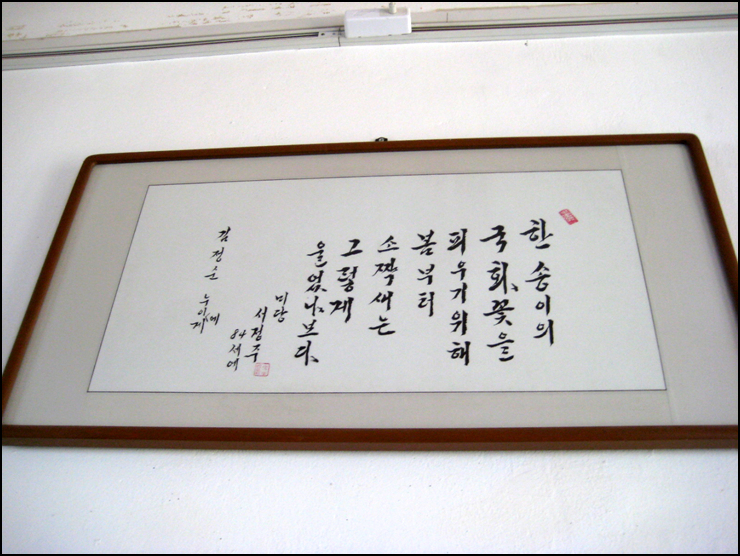 한 송이의
국화꽃을
피우기위해
봄부터
소짝새는
그렇게
울었나보다
미당
서정주
84세에
김정준